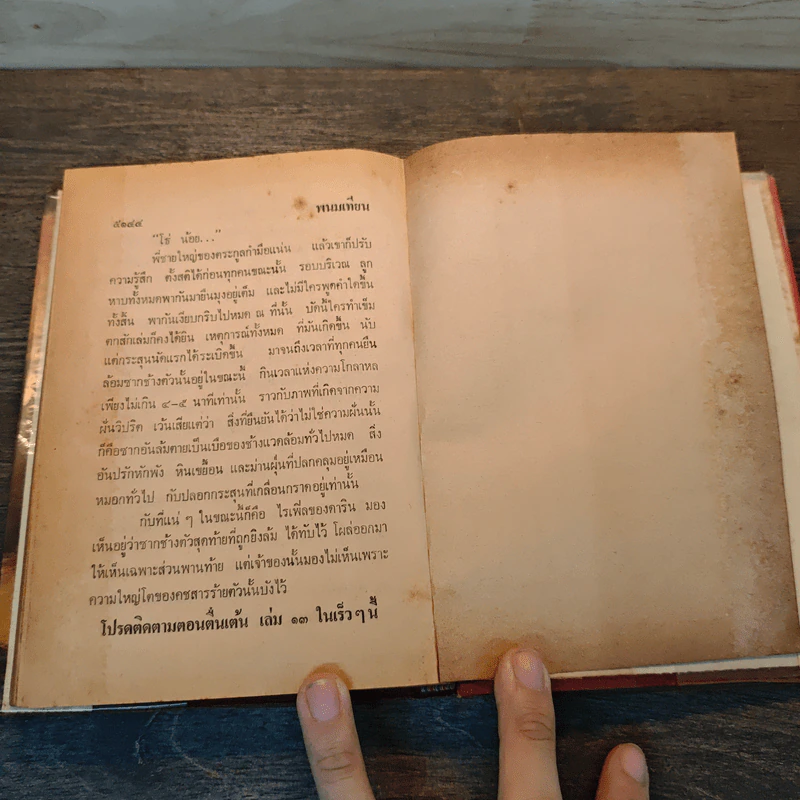 พนมเทียน
"โธ่ น้อย..."
พี่ชายใหญ่ของตระกูลกำมือแน่น แล้วเขาก็ปรับ
ความรู้สึก ตั้งสติได้ก่อนทุกคนขณะนั้น รอบบริเวณ ลูก
หาบทั้งหมดพากันมายืนมุงอยู่เต็ม และไม่มีใครพูดคำใดขึ้น
ทั้งสิ้น พากันเงียบกริบไปหมด ณ ที่นั้น บัดนี้ใครทำเข็ม
ตกสักเล่มก็คงได้ยิน เหตุการณ์ทั้งหมด ที่มันเกิดขึ้น นับ
แต่กระสุนนัดแรกได้ระเบิดขึ้น มาจนถึงเวลาที่ทุกคนยืน
ล้อมซากช้างตัวนั้นอยู่ในขณะนี้ กินเวลาแห่งความโกลาหล
เพียงไม่เกิน ๔-๕ นาทีเท่านั้น ราวกับภาพที่เกิดจากความ
ฝันวิปริต เว้นเสียแต่ว่า สิ่งที่ยืนยันได้ว่าไม่ใช่ความฝันนั้น
ก็คือซากอันล้มตายเป็นเบือของช้างแวดล้อมทั่วไปหมด สิ่ง
อันปรักหักพัง หินเขยื้อน และม่านฝุ่นที่ปลกคลุมอยู่เหมือน
หมอกทั่วไป กับปลอกกระสุนที่เกลื่อนกราดอยู่เท่านั้น
กับที่แน่ ๆ ในขณะนี้ก็คือ ไรเฟิ่ลของดาริน มอง
เห็นอยู่ว่าซากช้างตัวสุดท้ายที่ถูกยิงล้ม ได้ทับไว้ โผล่ออกมา
ให้เห็นเฉพาะส่วนพานท้าย แต่เจ้าของนั้นมองไม่เห็นเพราะ
ความใหญ่โตของคชสารร้ายตัวนั้นบังไว้
โปรดติดตามตอนตื่นเต้น เล่ม ๑๓ ในเร็ว ๆ นี้